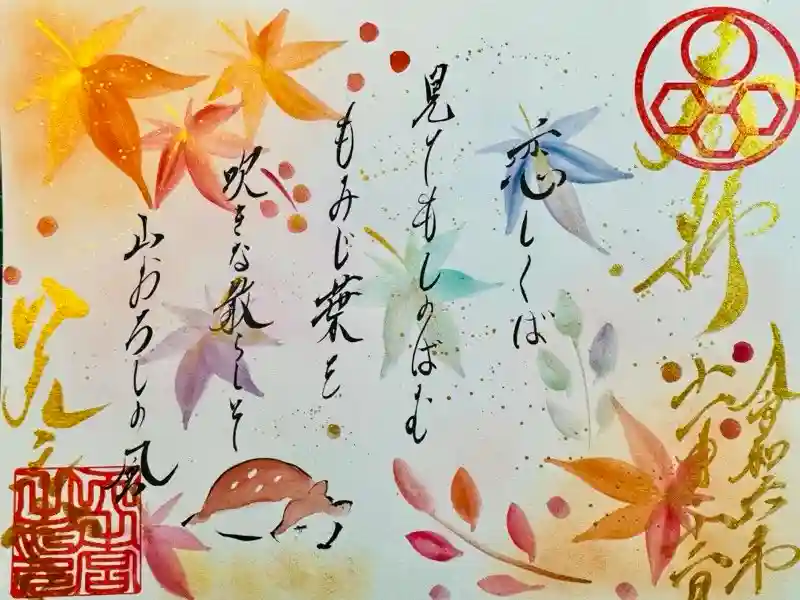 奉拝
令和六年
恋しくば
見てもしのばむ
もみじ葉を
吹きな散らしそ
山おろしの風